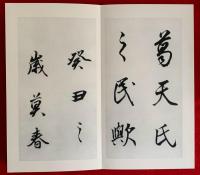 葛天氏
之民歟
癸丑之
歲莫春